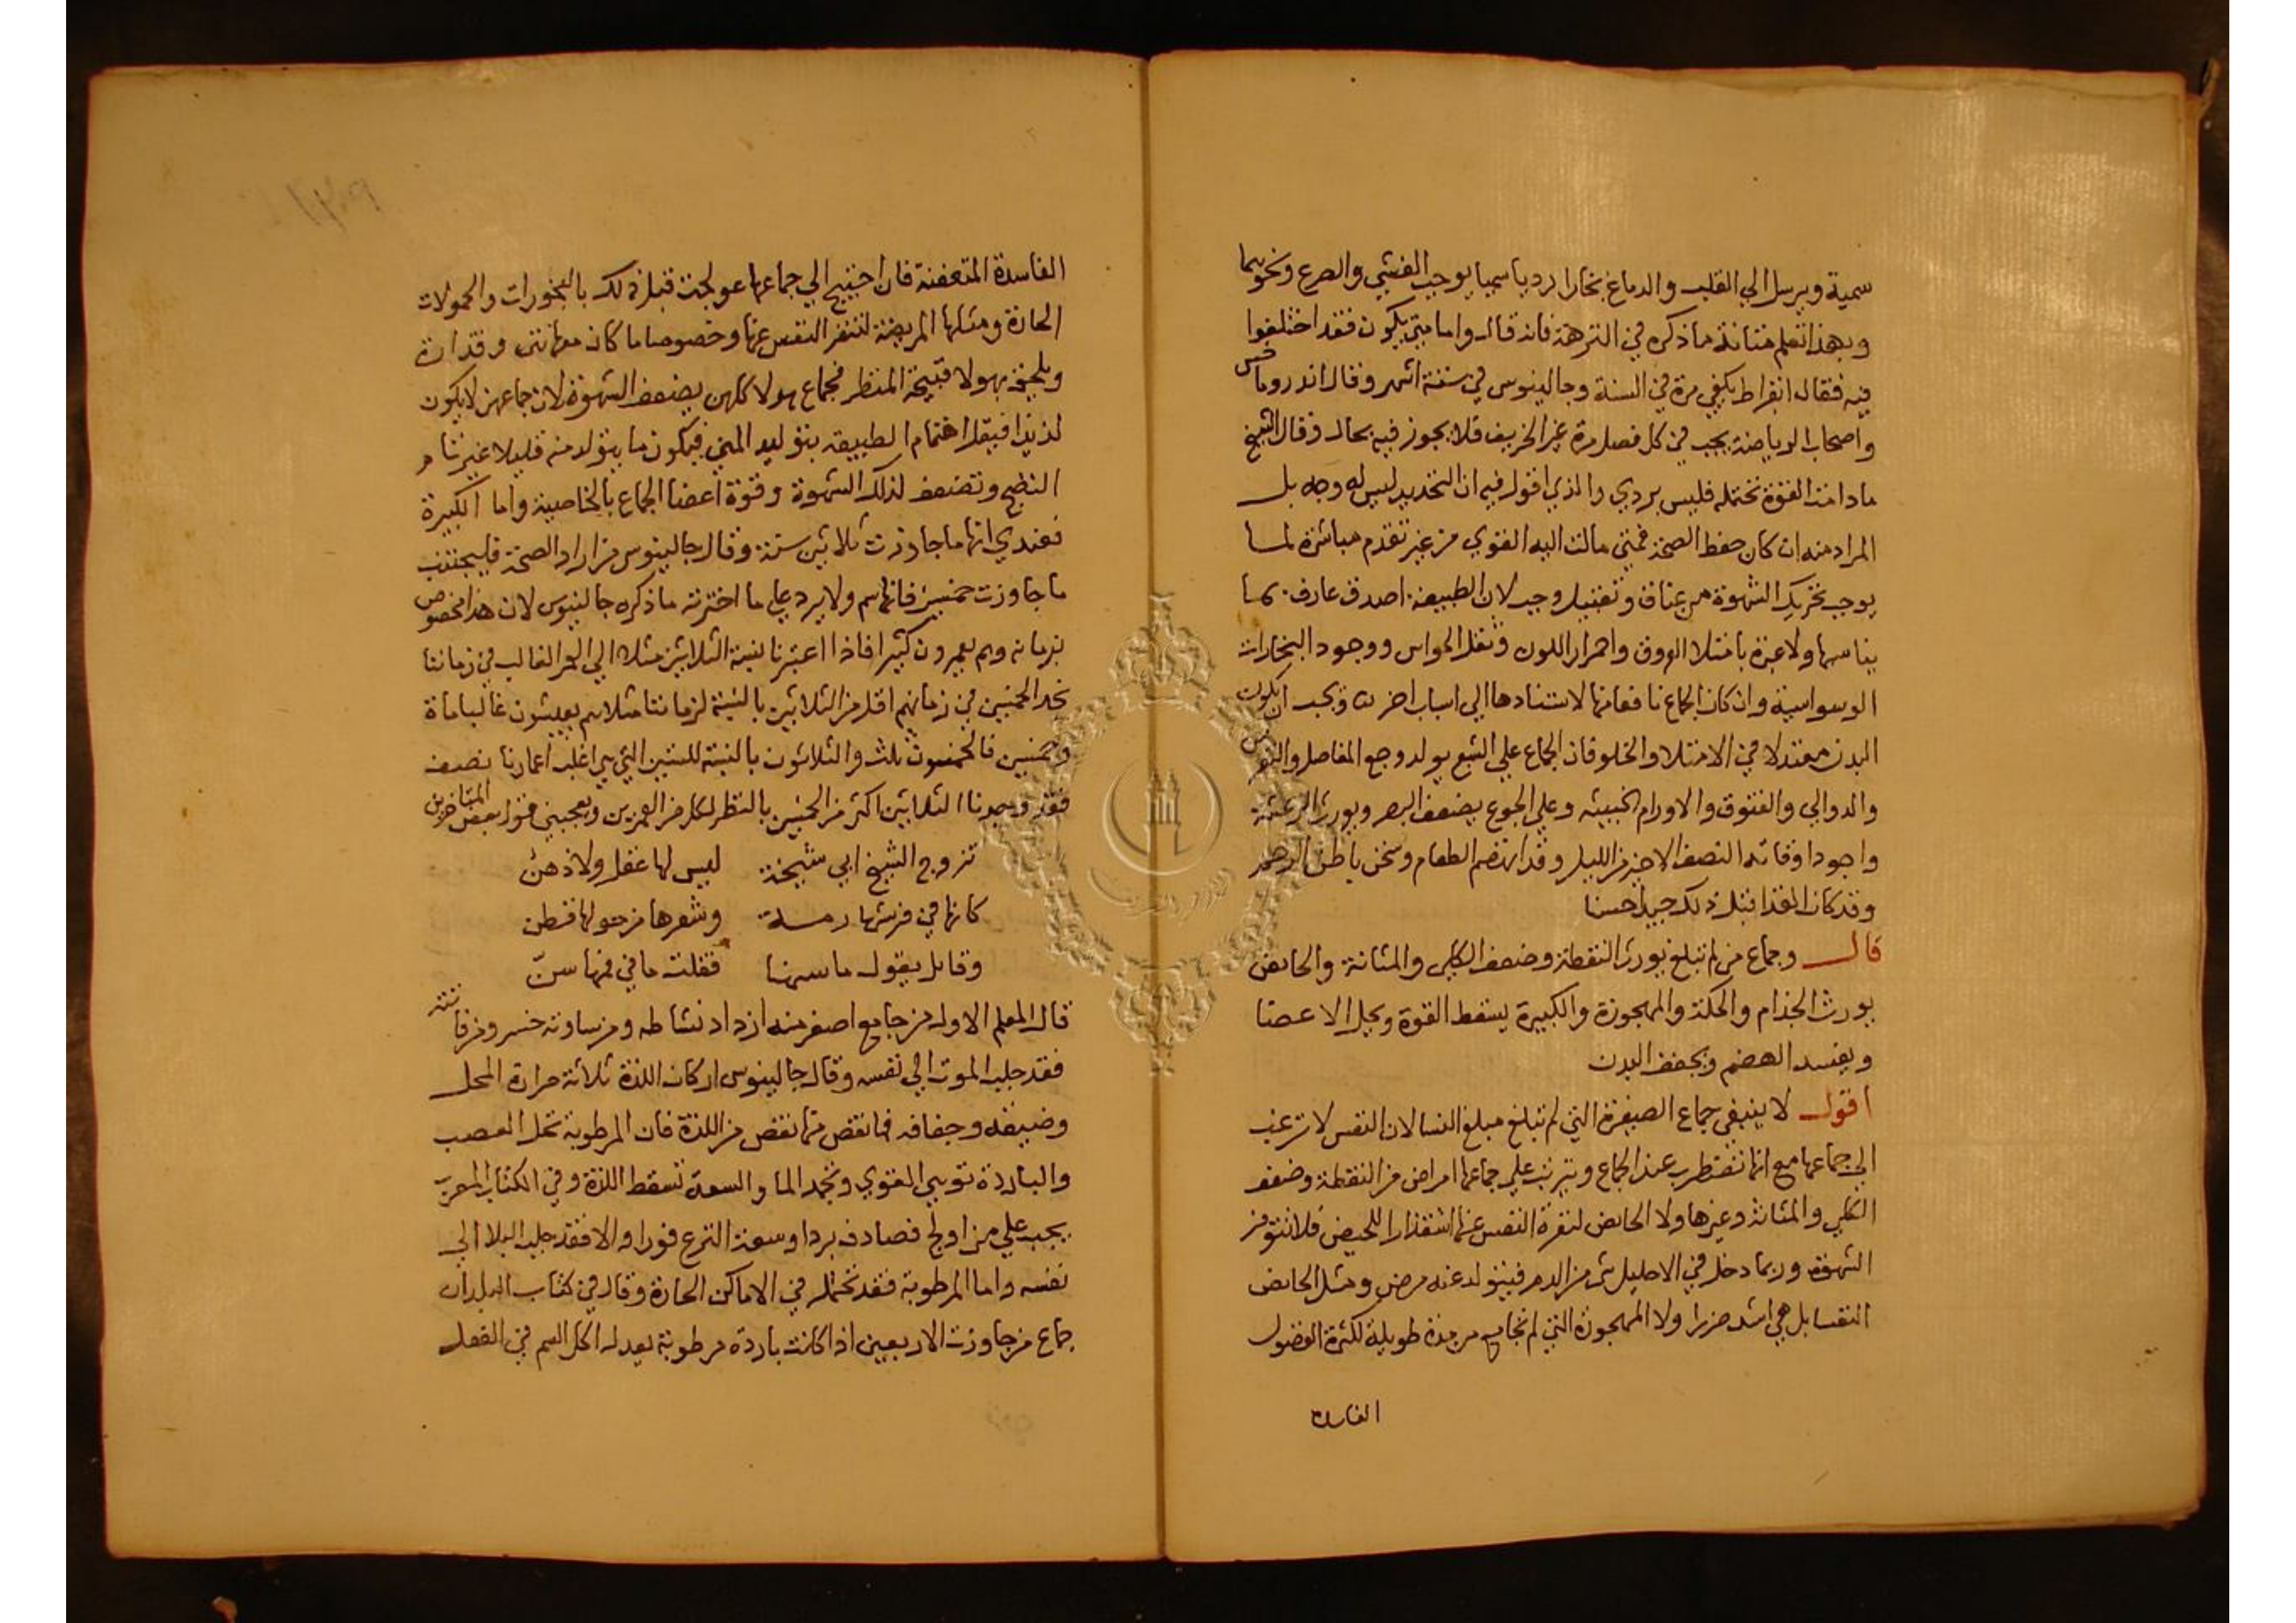 سمية ويرسل الي القلب والدماغ بخارا رديا سميا يوجب الغشي والصرع ونحوهما
وبهذا تعلم متانة ما ذكره في النزهة فانه قال واما متي يكون فقد اختلفوا
فيه فقال ابقراط يكفي مرة في السنة وجالينوس في ستة اشهر وقال اندروماخس
واصحاب الرياضة يجب في كل فصل مرة غير الخريف فلا يجوز فيه بحال وقال الشيخ
ما دامت القوة تحتمله فليس بردي والذي اقول فيه ان التحديد ليس له وجه بل
المراد منه ان كان حفظ الصحة فمتي مالت اليه القوي من غير تقدم مباشرة لما
يوجب تحريك الشهوة من عناق وتقبيل وجب لان الطبيعة اصدق عارف بما
يناسبها ولا عبرة بامتلا العروق واحمرار اللون وثقل الحواس ووجود البخارات
الوسواسية وان كان الجماع نافعا منها لاستنادها الي اسباب اخر ويجب ان يكون
البدن معتدلا في الامتلا والخلو فان الجماع علي الشبع يولد وجع المفاصل والنقرس
والدوالي والفتوق والاورام الخبيثه وعلي الجوع يضعف البصر ويورث الرعشة
واجود اوقاته النصف الاخير من الليل وقد انهضم الطعام وسخن باطن الرحم
وقد كان الغذا قبل ذلك جيدا حسنا
قال وجماع من لم تبلغ يورث النقطة وضعف الكلي والمثانة والحايض
يورث الجذام والحكة والمهجورة والكبيرة يسقط القوة ويحل الاعضا
ويفسد الهضم ويجفف البدن
اقول لا ينبغي جماع الصغيرة التي لم تبلغ مبلغ النسا لان النفس لا ترغب
الي جماعها مع انها تضطرب عند الجماع ويترتب علي جماعها امراض من النقطة وضعف
الكلي والمثانة وغيرها ولا الحايض لنفرة النفس عنها استقذارا للحيض فلا تتوفر
الشهوة وربما دخل في الاحليل شي من الدم فيتولد عنه مرض ومثل الحايض
النفسا بل هي اشد ضررا ولا المهجورة التي لم تجامع من مدة طويلة لكثرة الفضول
الفاسدة
الفاسدة المتعفنة فان احتيج الي جماعها عولجت قبل ذلك بالبخورات والحمولات
الحارة ومثلها المريضة لتنفر النفس عنها وخصوصا ما كان معها نتن وقذارة
ويلحق بهولا قبيحة المنظر فجماع هولا كلهن يضعف الشهوة لان جماعهن لا يكون
لذيذا فيقل اهتمام الطبيعة بتوليد المني فيكون ما يتولد منه قليلا غير تام
النضج وتضعف لذلك الشهوة وقوة اعضا الجماع بالخاصية واما الكبيرة
فعندي انها ما جاوزت ثلاثين سنة وقال جالينوس من اراد الصحة فليجتنب
ما جاوزت خمسين فانها سم ولا يرد علي ما اخترته ما ذكره جالينوس لان هذا مخصوص
بزمانه وهم يعمرون كثيرا فاذا اعتبرنا نسبة الثلاثين مثلا الي العمر الغالب في زماننا
نجد الخمسين في زمانهم اقل من الثلاثين بالنسبة لزماننا مثلا هم يعيشون غالبا ماة
وخمسين فالخمسون ثلث والثلاثون بالنسبة للستين التي هي اغلب اعمارنا نصف
فقد وجدنا الثلاثين اكثر من الخمسين بالنظر لكل من العمرين ويعجبني قول بعض المتاخرين
تزوج الشيخ ابي شيخة ليس لها عقل ولا ذهن
كانها في فرشها رمة وشعرها من حولها قطن
وقايل يقول ما سنها فقلت ما في فمها سنّ
قال المعلم الاول من جامع اصغر منه ازداد نشاطه ومن ساوته خسر ومن فاتته
فقد جلب الموت الي نفسه وقال جالينوس اركان اللذة ثلاثة حرارة المحل
وضيقه وجفافه فما نقص منها نقص من اللذة فان الرطوبة تحل العصب
والباردة توهي القوي وتجمد الما والسعة تسقط اللذة وفي الكتاب المعرب
يجب علي من اولج فصادف بردا وسعة النزع فورا والا فقد جلب البلا الي
نفسه واما الرطوبة فقد تحتمل في الاماكن الحارة وقال في كتاب البلدان
جماع من جاوزت الاربعين اذا كانت باردة مرطوبة يعدل اكل السم في الفعل